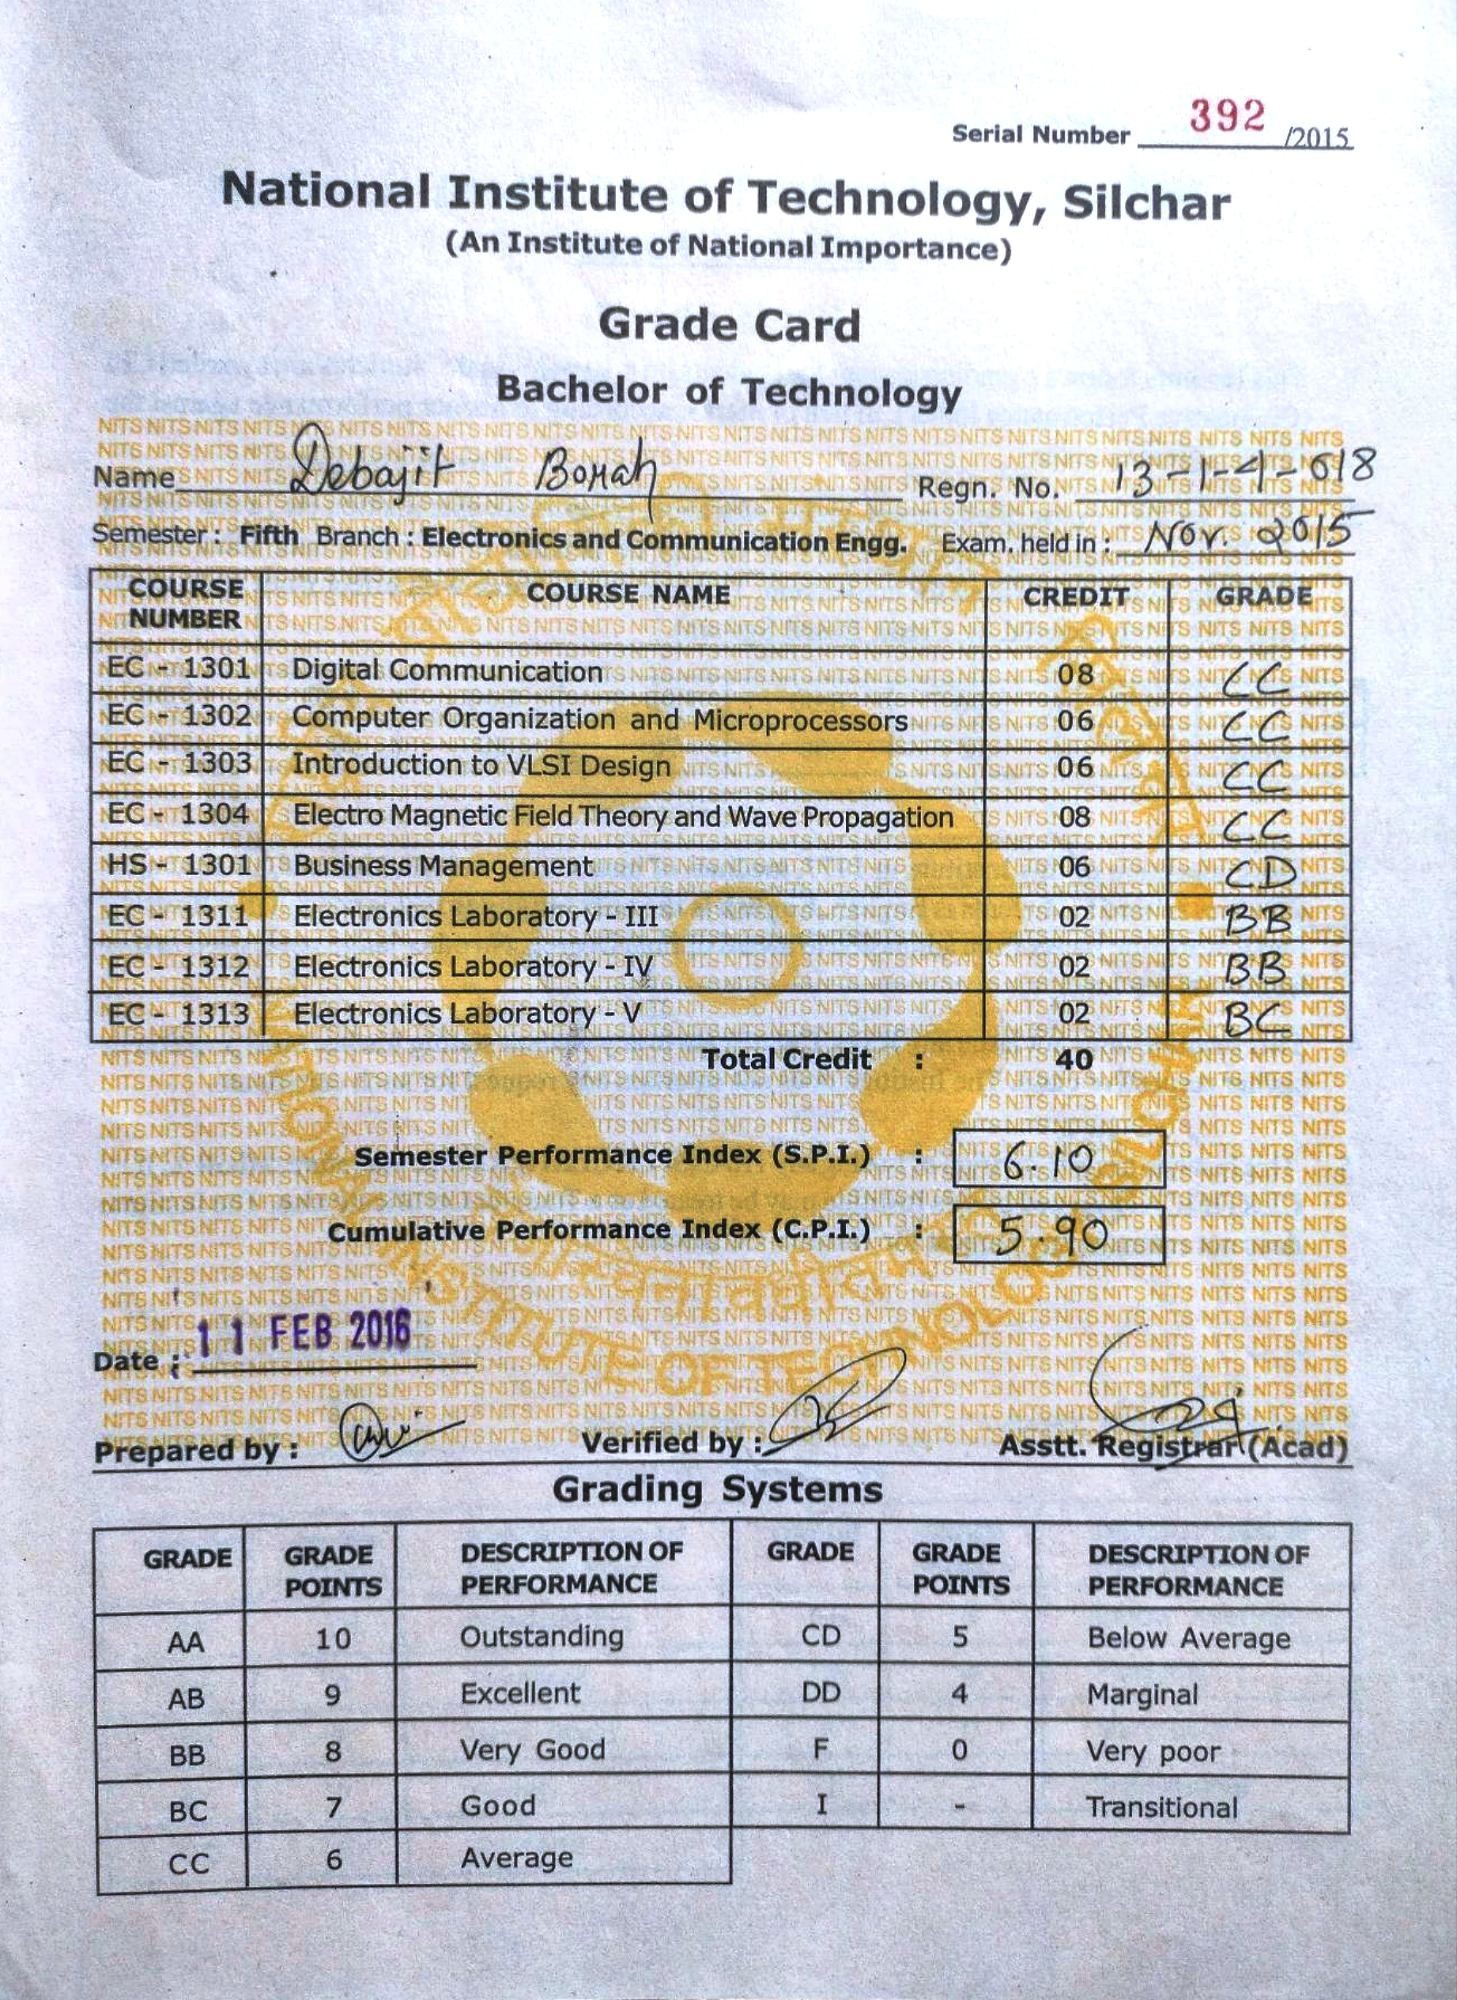 Serial Number 392 /2015
National Institute of Technology, Silchar
(An Institute of National Importance)
Grade Card
Bachelor of Technology
Name Debajit Borah Regn. No. 13-1-4-618
Semester : Fifth Branch : Electronics and Communication Engg. Exam. held in : Nov. 2015
COURSE NUMBER COURSE NAME CREDIT GRADE
EC - 1301 Digital Communication 08 CC
EC - 1302 Computer Organization and Microprocessors 06 CC
EC - 1303 Introduction to VLSI Design 06 CC
EC - 1304 Electro Magnetic Field Theory and Wave Propagation 08 CC
HS - 1301 Business Management 06 CD
EC - 1311 Electronics Laboratory - III 02 BB
EC - 1312 Electronics Laboratory - IV 02 BB
EC - 1313 Electronics Laboratory - V 02 BC
Total Credit : 40
Semester Performance Index (S.P.I.) : 6.10
Cumulative Performance Index (C.P.I.) : 5.90
Date : 11 FEB 2016
Prepared by : Verified by : Asstt. Registrar (Acad)
Grading Systems
GRADE GRADE POINTS DESCRIPTION OF PERFORMANCE GRADE GRADE POINTS DESCRIPTION OF PERFORMANCE
AA 10 Outstanding CD 5 Below Average
AB 9 Excellent DD 4 Marginal
BB 8 Very Good F 0 Very poor
BC 7 Good I - Transitional
CC 6 Average